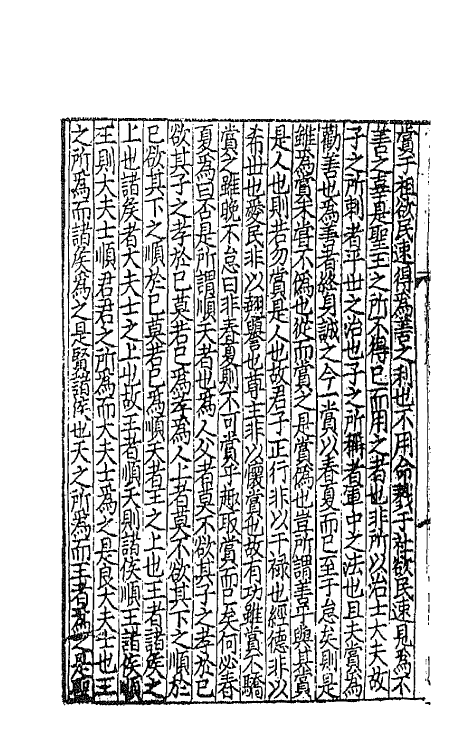 賞于祖欲民速得為善之利也不用命戮于社欲民速見為不
善之辜是聖王之所不得已而用之者也非所以治士大夫故
子之所刺者平世之治也子之所稱者軍中之法也且夫賞為
勸善也為善者終身誠之今一賞以春夏而已至于怠矣則是
雖為賞未嘗不偽也從而賞之是賞偽也豈所謂善乎與其賞
是人也則若勿賞是人也故君子正行非以干祿也經德非以
希世也愛民非以翹譽也尊主非以懷賞也故有功雖賞不驕
賞必雖晚不怠曰非春夏則不可賞乎趣取賞而已矣何必春
夏為曰否是所謂順天者也為人父者莫不欲其子之孝於已
欲其子之孝於已莫若已為孝為人上者莫不欲其下之順於
已欲其下之順於已莫若已為順天者王之上也王者諸侯之
上也諸侯者大夫士之上也故王者順天則諸侯順王諸侯順
王則大夫士順君君之所為而大夫士為之是良大夫士也王
之所為而諸侯為之是賢諸侯也天之所為而王者為之是聖